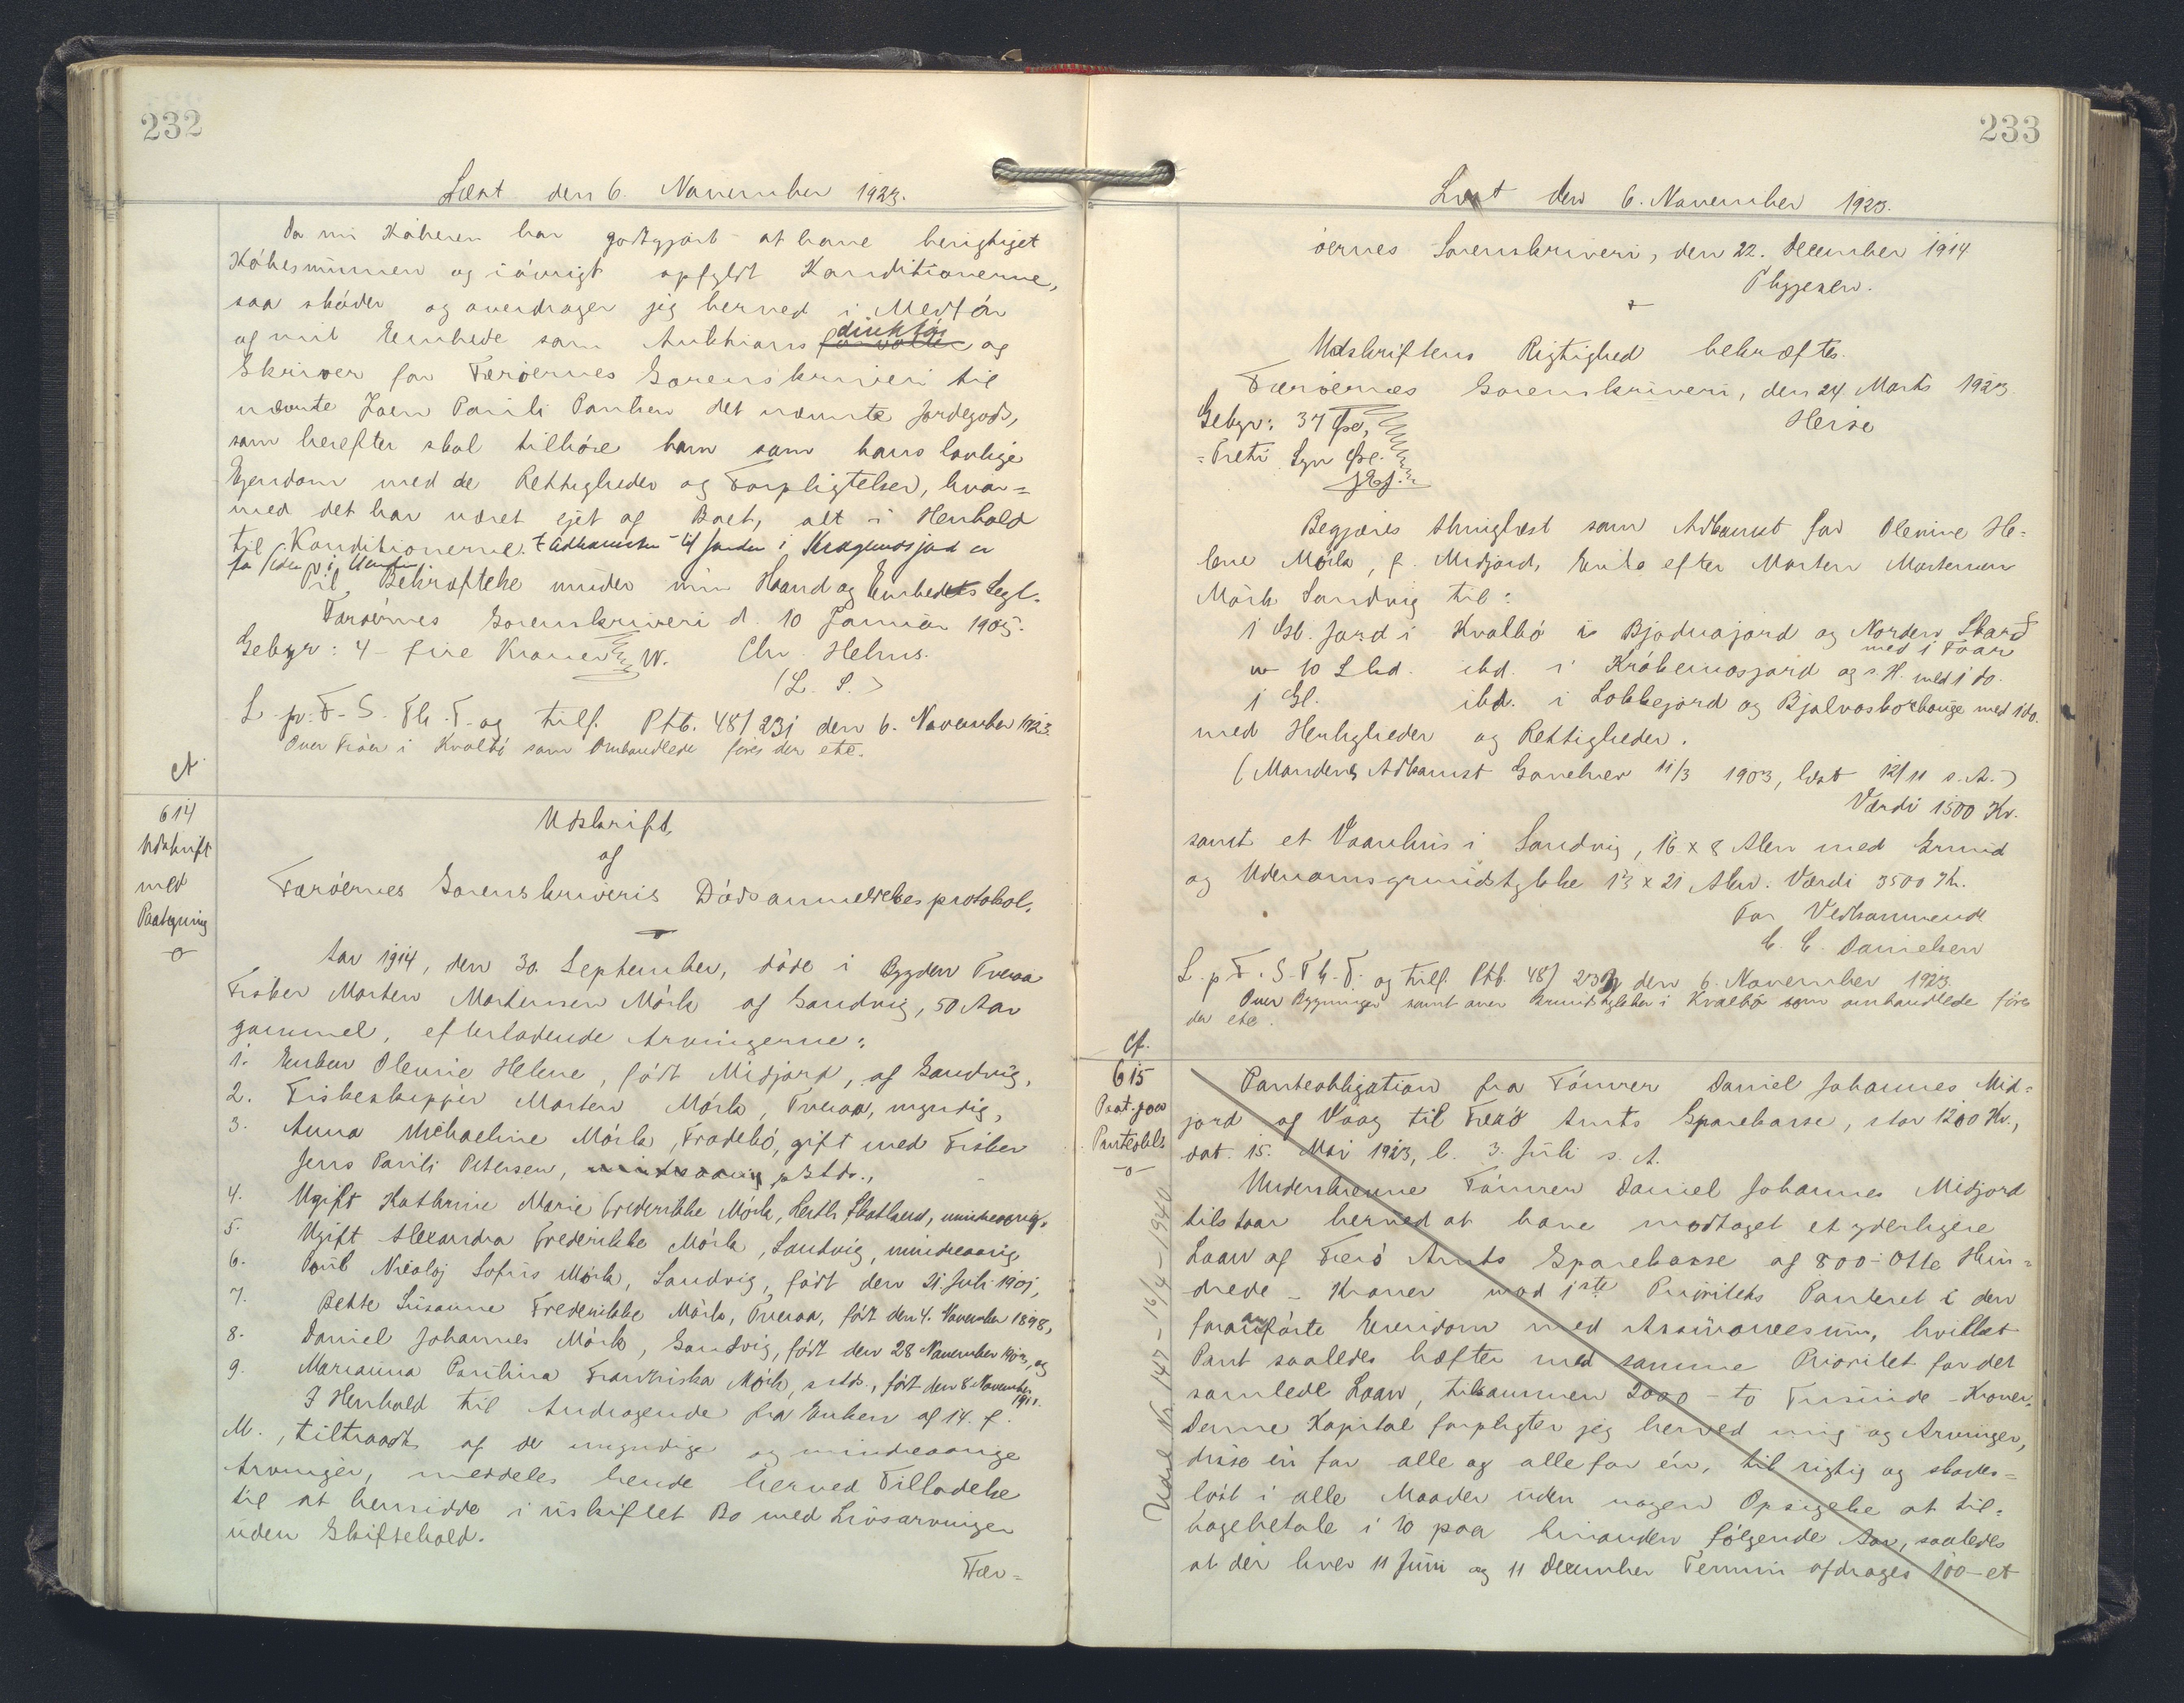 232
Læst den 6. November 1923.
Da nu Køberen har godtgjort at have berigtiget
Købesummen og iøvrigt opfyldt Konditionerne,
saa skøder og overdrager jeg herved i Medfør
af mit Embede som Auktions direktør og
Skriver for Færøernes Sorenskriveri til
nævnte Joen Pauli Paulsen det nævnte Jordegods,
som herefter skal tilhøre ham som hans lovlige
Ejendom med de Rettigheder og Forpligtelser, hvor=
med det har været ejet af Boet, alt i Henhold
til Konditionerne. Adkomsten til Jorden i Kragensjord er
Til Bekræftelse under min Haand og Embeds Segl.
Færøernes Sorenskriveri d. 10 Januar 1905.
Gebyr: 4 - fire Kroner W. Chr. Helms.
(L. S.)
L. p. F. S. Th. T. og tilf. Ptb. 48/231 den 6. November 1923.
Over Troer i Kvalbø som Omhandlede føres der etc.
cf.
614
Udskrift
med
Paategning
Udskrift
af
Færøernes Sorenskriveris Dødsanmeldelsesprotokol.
Aar 1914, den 30. September, døde i Bygden Tveraa
Fisker Morten Mortensen Mörk af Sandvig, 50 Aar
gammel, efterladende Arvingerne:
1. Enken Olevine Helene, født Midjord, af Sandvig,
2. Fiskeskipper Morten Mörk, Tveraa, myndig,
3. Anna Michaeline Mörk, Frodebø, gift med Fisker
Jens Pauli Petersen, sstds.,
4. Ugift Kathrine Marie Frederikke Mörk, Leith Skotland, mindreaarig,
5. Ugift Alexandra Frederikke Mörk, Sandvig, mindreaarig
6. Poul Nicolaj Sofus Mörk, Sandvig, født den 21 Juli 1901,
7. Bette Susanne Frederikke Mörk, Tveraa, født den 4. November 1898,
8. Daniel Johannes Mörk, Sandvig, født den 28 November 1903, og
9. Marianna Paulina Franziska Mörk, sstds., født den 8 November
1911.
I Henhold til Andragende fra Enken af 14. f.
M., tiltraadt af de umyndige og mindreaarige
Arvinger, meddeles hende herved Tilladelse
til at hensidde i uskiftet Bo med Livsarvinger
uden Skiftehold.
Fær=
233
Læst den 6. November 1923.
øernes Sorenskriveri, den 22. December 1914
Udskriftens Rigtighed bekræftes.
Færøernes Sorenskriveri, den 24. Marts 1923
Gebyr: 37 Øre, Heise
= Treti Syv Øre.
Begjæres thinglæst som Adkomst for Olevine He=
lene Mörk, f. Midjord, Enke efter Morten Mortensen
Mörk Sandvig til:
1 Gl. Jord i Kvalbø i Bjadnajord og Norden Skard
med 1 Faar
10 Skd. ibd. i Krákumosjord og s. H. med 1 do.
1 Gl. ibd. i Lokkejord og Bjalvaskorhauge med 1 do.
med Herligheder og Rettigheder.
(Mandens Adkomst Gavebrev 11/3 1903, læst 12/11 s. A.)
Værdi 1500 Kr.
samt et Vaanhus i Sandvig, 16 x 8 Alen med Grund
og Udenomsgrundstykke 13 x 21 Alen. Værdi 3500 Kr.
For Vedkommende
E. E. Danielsen
L. p. F. S. Th. T. og tilf. Ptb. 48/232 den 6. November 1923.
Over Bygninger samt over Grundstykker i Kvalbø som omhandlede føres
der etc.
cf.
615
Paat. paa
Panteobl.
Panteobligation fra Tømrer Daniel Johannes Mid=
jord af Vaag til Færø Amts Sparekasse, stor 1200 Kr.,
dat. 15. Maj 1923, l. 3. Juli s. A.
Underskrevne Tømrer Daniel Johannes Midjord
tilstaar herved at have modtaget et yderligere
Laan af Færø Amts Sparekasse af 800 - Otte Hun=
drede - Kroner mod 1ste Prioritets Panteret i den
foranførte Ejendom med Assurancesum, hvilket
Pant saaledes hæfter med samme Prioritet for det
samlede Laan, tilsammen 2000 - to Tusinde - Kroner.
Denne Kapital forpligter jeg herved mig og Arvinger,
disse én for alle og alle for én, til rigtig og skades=
løst i alle Maader uden nogen Opsigelse at til=
bagebetale i 10 paa hinanden følgende Aar, saaledes
at der hver 11 Juni og 11 December Termin afdrages 100 - et
Udsl. Nr. 147 - 16/4 - 1940